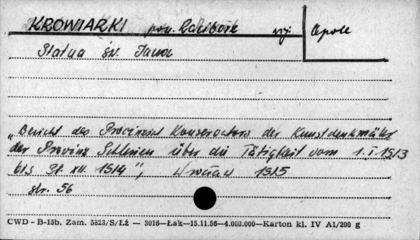 KROWIARKI pow. Racibórz woj. Opole
Statua św. Jana
„Bericht des Provinzial Konservators der Kunstdenkmäler
der Provinz Schlesien über die Tätigkeit vom 1.I 1913
bis 31.XII.1914", Wrocław 1915
str. 56
CWD - B-15b. Zam. 5823/S/Łż — 3016—Łsk—15.11.56—4.000.000—Karton kl. IV A1/200 g